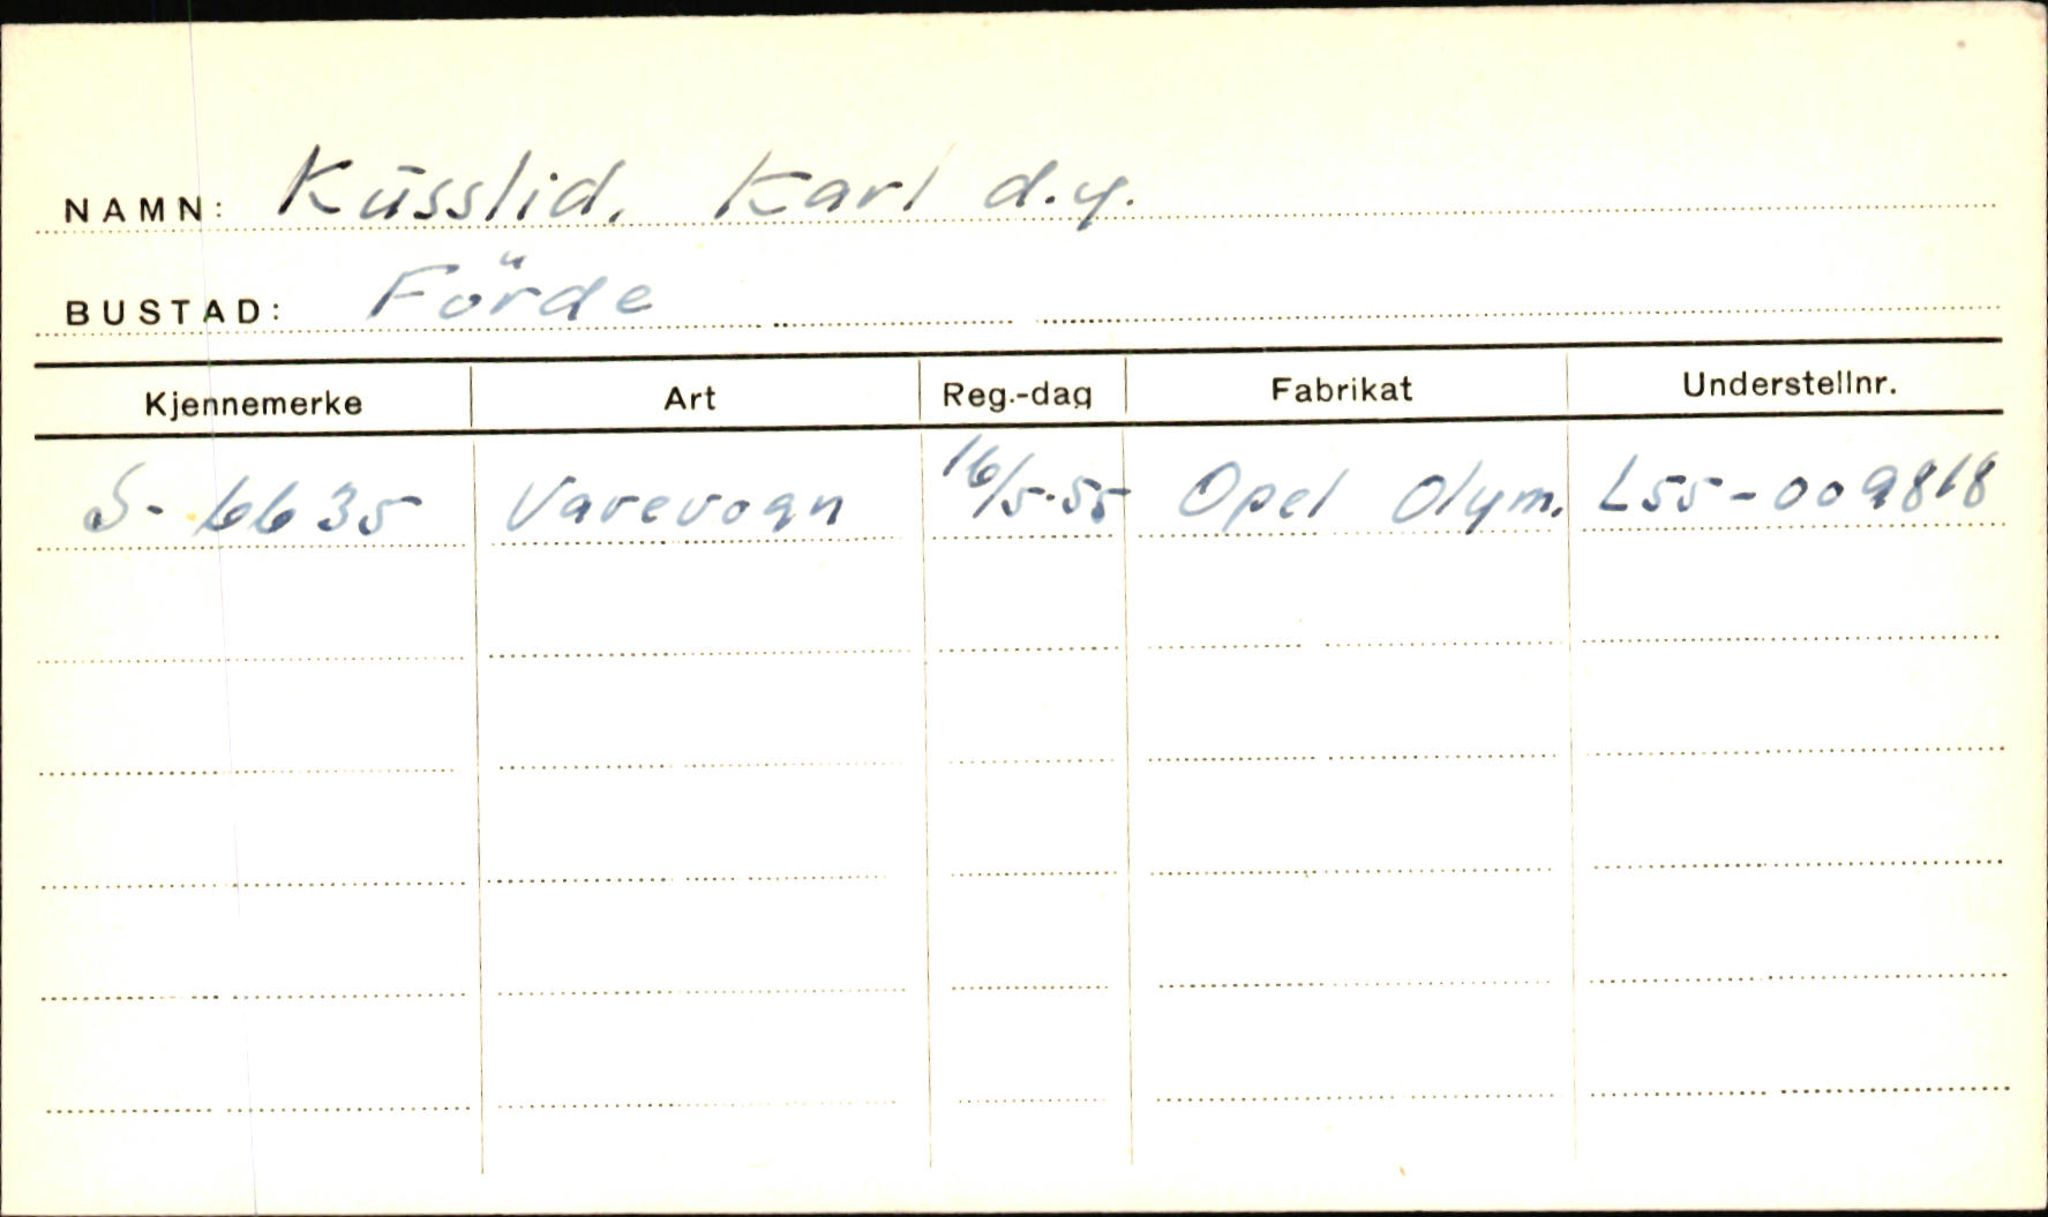 NAMN: Kūsslid, Karl d.y.
BUSTAD: Förde
Kjennemerke Art Reg.-dag Fabrikat Understellnr.
S-6635 Varevogn 16/5-55 Opel Olym. L55-009818